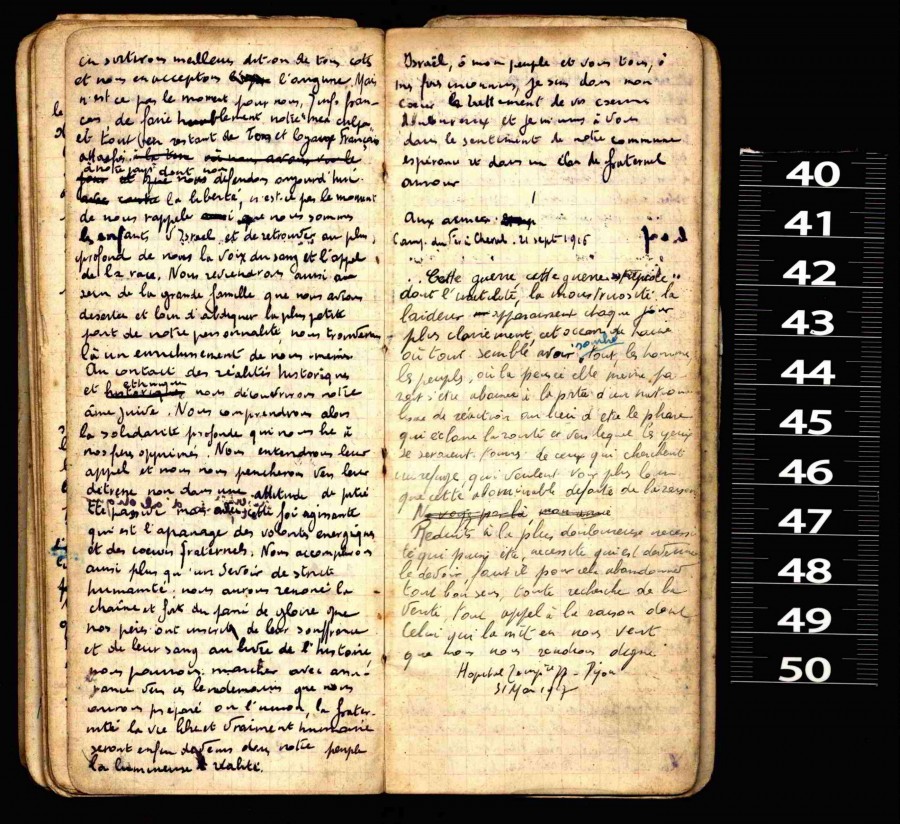 en sortirons meilleurs dit-on de tous cotés
et nous en acceptons l'augure. Mais
n'est ce pas le moment pour nous, juifs fran-
çais de faire humblement notre "mea culpa"
et tout en restant de bons et loyaux Français
attachés
à notre pays dont nous
et que nous défendons aujourd'hui
la liberté, n'est-ce pas le moment
de nous rappeler que nous sommes
les enfants d'Israel et de retrouver au plus
profond de nous la voix du sang et l'appel
de la race. Nous reviendrons ainsi au
sein de la grande famille que nous avions
desertée et loin d'abdiquer la plus petite
part de notre personnalité nous trouverons
là un enrichissement de nous-mêmes
Au contact des réalités historiques
et ethniques nous découvrirons notre
âme juive. Nous comprendrons alors
la solidarité profonde qui nous lie à
nos frères opprimés. Nous entendrons leur
appel et nous nous pencherons vers leur
détresse non dans une attitude de pitié
passive mais avec cette foi agissante
qui est l'apanage des volontés énergiques
et des coeurs fraternels. Nous accomplirons
ainsi plus qu'un devoir de stricte
humanité: nous aurons renoué la
chaîne et fort du passé de gloire que
nos pères ont inscrit de leur souffrance
et de leur sang au livre de l'histoire
nous pourrons marcher avec assu-
rance vers ces lendemains que nous
aurons préparé où l'union, la frater-
nité la vie libre et vraiment humaine
seront enfin devenus dans notre peuple
la lumineuse réalité.
Israël, ô mon peuple et vous tous, ô
mes frères inconnus, je sens dans mon
coeur le battement de vos coeurs
douloureux et je m'unis à vous
dans le sentiment de notre commune
espérance et dans un élan de fraternel
amour
Aux armées
Camp du 21 sept 1916
Cette guerre cette guerre
dont l'inutilité, la monstruosité, la
laideur apparaissent chaque jour
plus clairement, cet océan de haine
où tout semble avoir sombré, tout, les hommes
les peuples, où la pensée elle même, pa-
rait s'être abaissée à la portée d'un
de réaction au lieu d'être le phare
qui éclaire la route et vers lequel les yeux
se seraient tournés de ceux qui cherchent
un refuge, qui veulent voir plus loin
que cette abominable défaite de la raison
Réduits à la plus douloureuse necessi-
té qui puisse être, necessité qui est devenue
le devoir, faut il pour cela abandonner
tout bon sens, toute recherche de la
verité, tout appel à la raison dont
celui qui la mit en nous veut
que nous nous rendions digne
Hopital Dijon
31 Mai
40
41
42
43
44
45
46
47
48
49
50